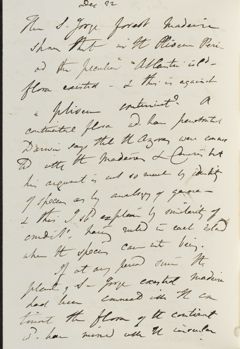 Dec 22
The S. Jorge forest Madeira
Shows that in the Pliocene Peri
od the peculiar Atlantic isld
flora existed - & this is against
a pliocene continent? A
continental flora wd have penetrated
Darwin says that the Azores were connec
ted with the Madeiras & Canaries but
his argument is not so much by identity
of species as by analogy of genera
& this I wd explain by similarity of
condits having existed in each isld
when the species came into being.
If at any period since the
plants of S. Jorge existed Madeira
had been connected with the con
tinent the flora of the continent
wd have mixed with the insular